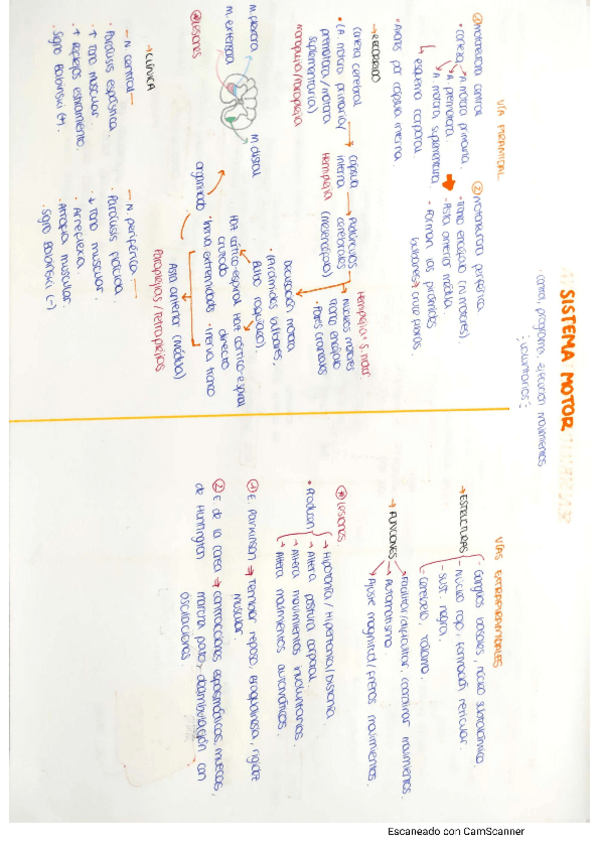 SISTEMA MOTOR
· control, programa, ejecución movimientos
; voluntarios ;
VÍA PIRAMIDAL
① motoneurona central
· corteza
A motora primaria.
A premotora.
A motora suplementaria.
↳ esquema corporal
· Axones por cápsula interna.
② motoneurona periférica
· Tronco encéfalo (N motores)
· Asta anterior médula.
- Forman las pirámides
bulbares → cruce parcial
→ RECORRIDO
corteza cerebral → cápsula interna → Pedúnculos cerebrales (mesencéfalo)
· (A. motora primaria/
premotora/motora
suplementaria)
monoplejia/paraplejia
Hemiplejia
Hemiplejia + S. motor
Núcleos motores
tronco encéfalo
· Pares craneales
Decusación motora
· (Pirámides bulbares,
Bulbo raquídeo).
Haz córtico-espinal
cruzado
Haz córtico-espinal
directo
· Inerva extremidades
· Inerva tronco
organizado
Asta anterior (médula)
Paraplejias / Tetraplejias
M. flexora
M. extensora
M. distal
⊛ Lesiones
→ CLÍNICA
- N. central -
· Parálisis espástica.
· ↑ Tono muscular.
· ↑ Reflejos estiramiento.
· Signo Babinski (+).
- N. periférica -
· Parálisis flácida.
· ↓ Tono muscular.
· Arreflexia.
· Atrofia muscular.
· Signo Babinski (-).
VÍAS EXTRAPIRAMIDALES
→ ESTRUCTURAS
- Ganglios basales, núcleo subtalámico
- Núcleo rojo, formación reticular.
- Sust. negra.
- Cerebelo, Tálamo.
→ FUNCIONES
Facilitar/dificultar, coordinar movimientos.
Automatismo.
Ajuste magnitud/frenos movimientos.
⊛ Lesiones.
· Producen
→ Hipotonía / Hipertonía / Distonía.
→ Altera postura corporal.
→ Altera movimientos involuntarios.
→ Altera movimientos automáticos.
① E. Parkinson → Temblor reposo, bradicinesia, rigidez
muscular.
② E de la corea → contracciones espasmódicas, muecas,
de Huntington marcha pato y deambulación con
oscilaciones.
Escaneado con CamScanner